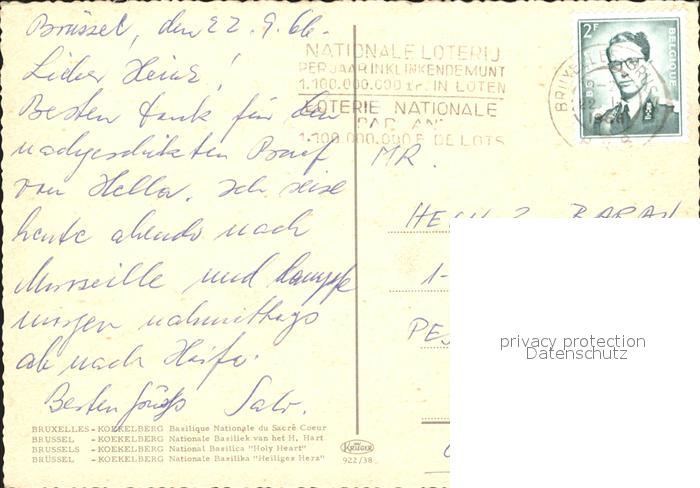 Brüssel, den 22.9.66.
Lieber Heinz!
Besten Dank für den
nachgeschickten Brief
von Hella. Ich reise
heute abends nach
Marseille und dampfe
morgen nachmittags
ab nach Haifa.
Besten Gruß
BRUXELLES - KOEKELBERG Basilique Nationale du Sacré Coeur
BRUSSEL - KOEKELBERG Nationale Basiliek van het H. Hart
BRUSSELS - KOEKELBERG National Basilica "Holy Heart"
BRÜSSEL - KOEKELBERG Nationale Basilika "Heiliges Herz"
KRÜGER
922/38
NATIONALE LOTERIJ
PER JAAR IN KLINKENDE MUNT
1.100.000.000 fr. IN LOTEN
LOTERIE NATIONALE
PAR AN
1.100.000.000 F. DE LOTS
2F
BELGIQUE
MR.
privacy protection
Datenschutz